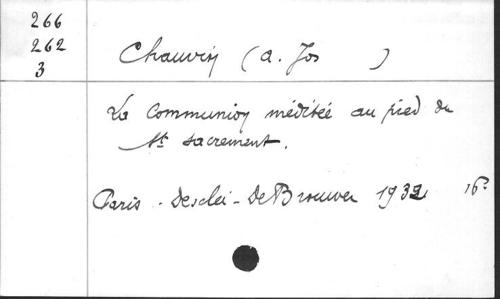 266
262
3
Chauvin (A. Jos )
La Communion méditée au pied du
St sacrement.
Paris - Desclei - De Brouwer 1932 16°